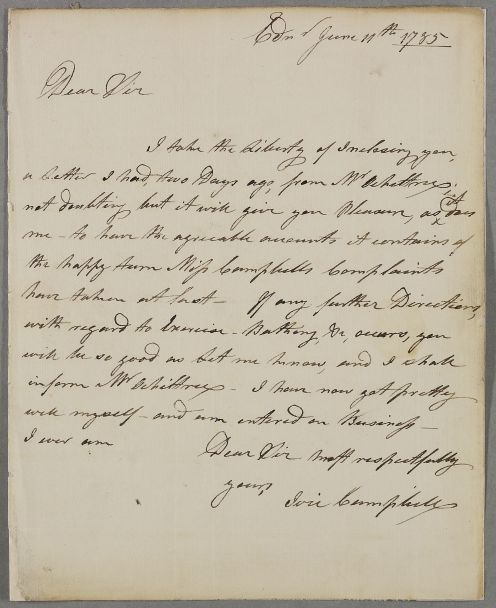 Edn.r June 11th 1785
Dear Sir
I take the Liberty of Inclosing you,
a Letter I had, two Days ago from Mr Ochiltree,
not doubting but it will give you Pleasure, as it does
me - to have the agreeable accounts it contains of
the happy turn Miss Campbells Complaints
have taken at last - If any further Directions,
with regard to Exercise - Bathing &c, occurs, you
will be so good as Let me know, and I shall
inform Mr Ochiltree - I have now got pretty
well myself - and am entered on Business -
I ever am
Dear Sir most respectfully
yours,
Ivie Campbell